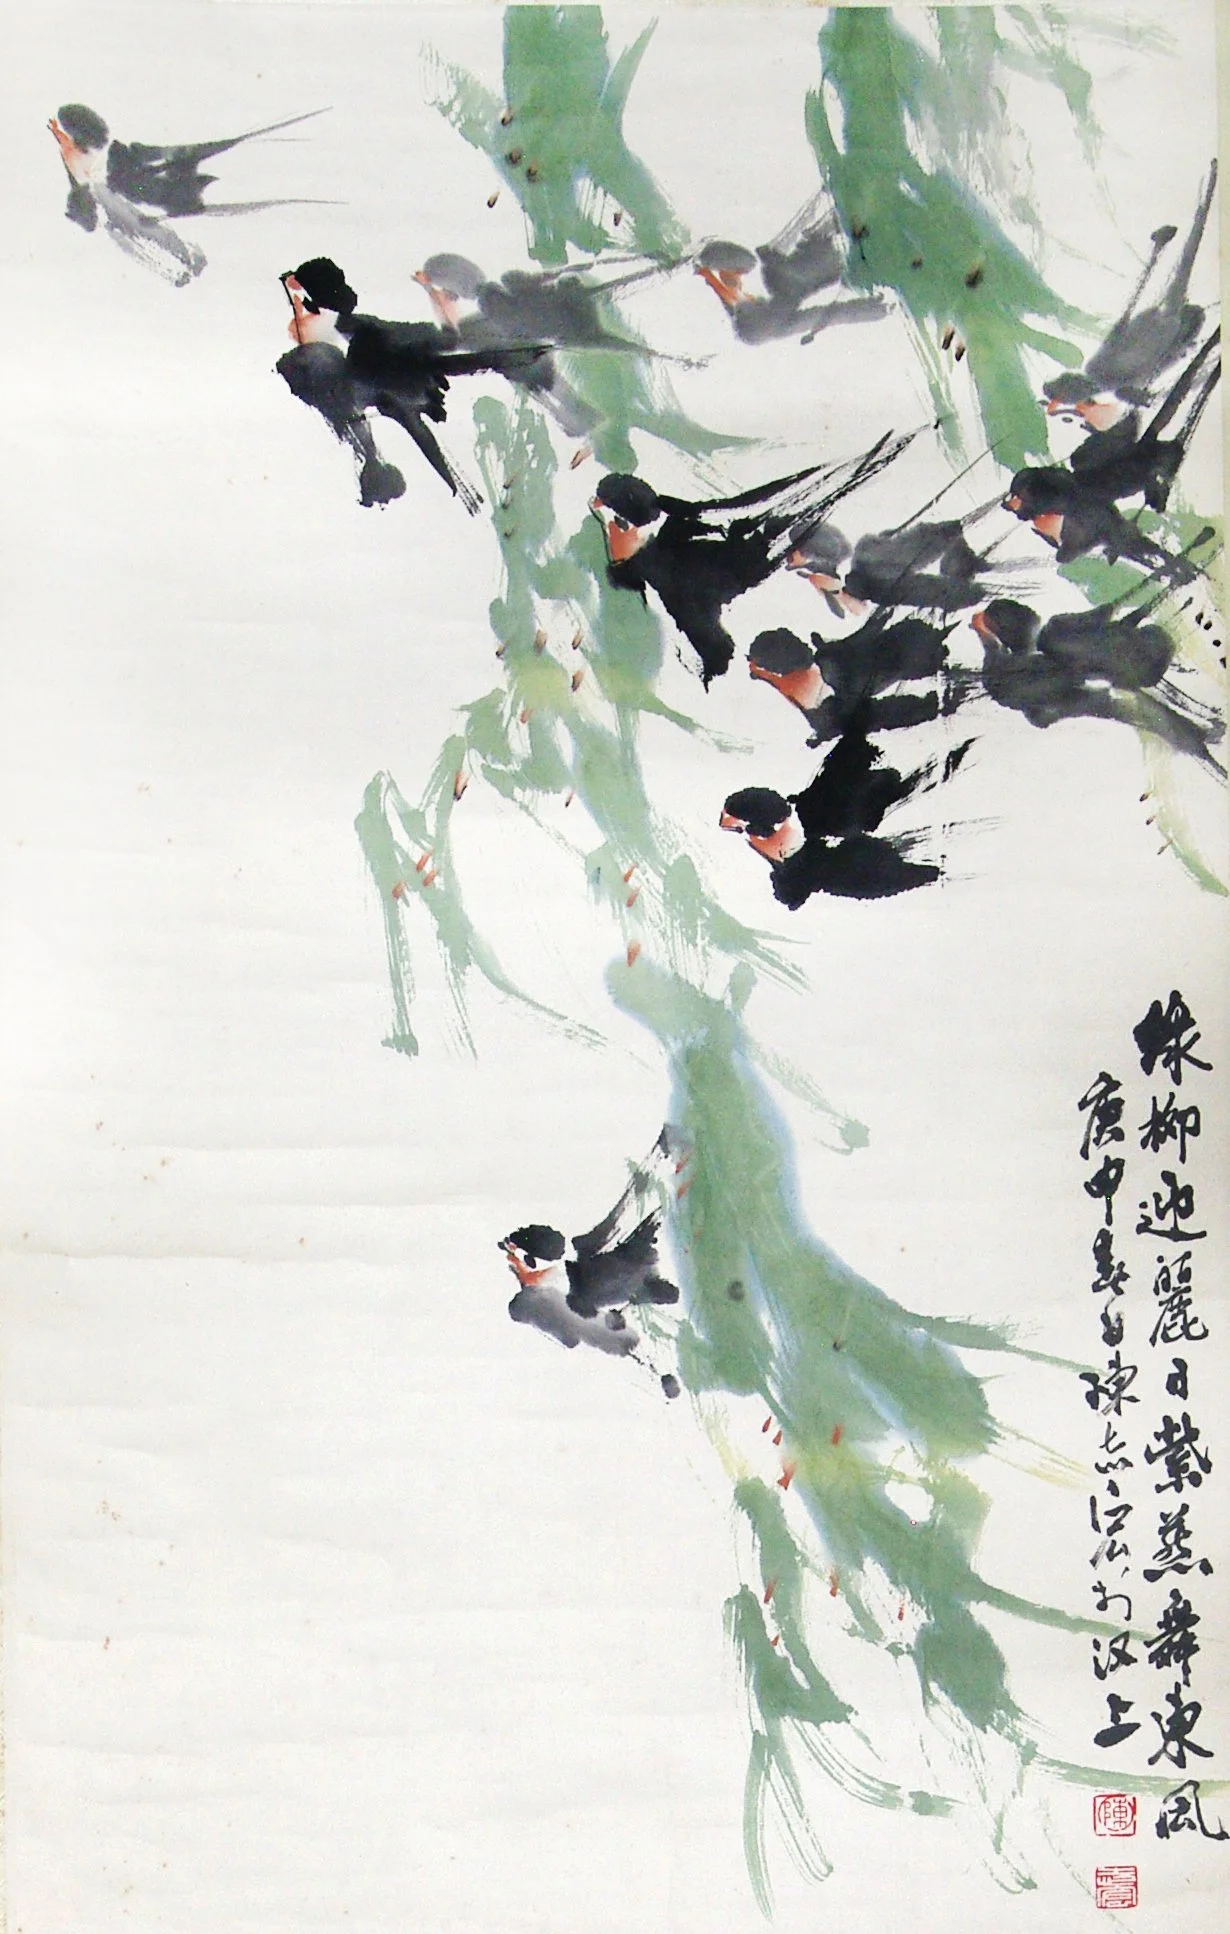 绿柳迎麗日紫燕舞東風
庚申春日陳志宏於汉上
陳